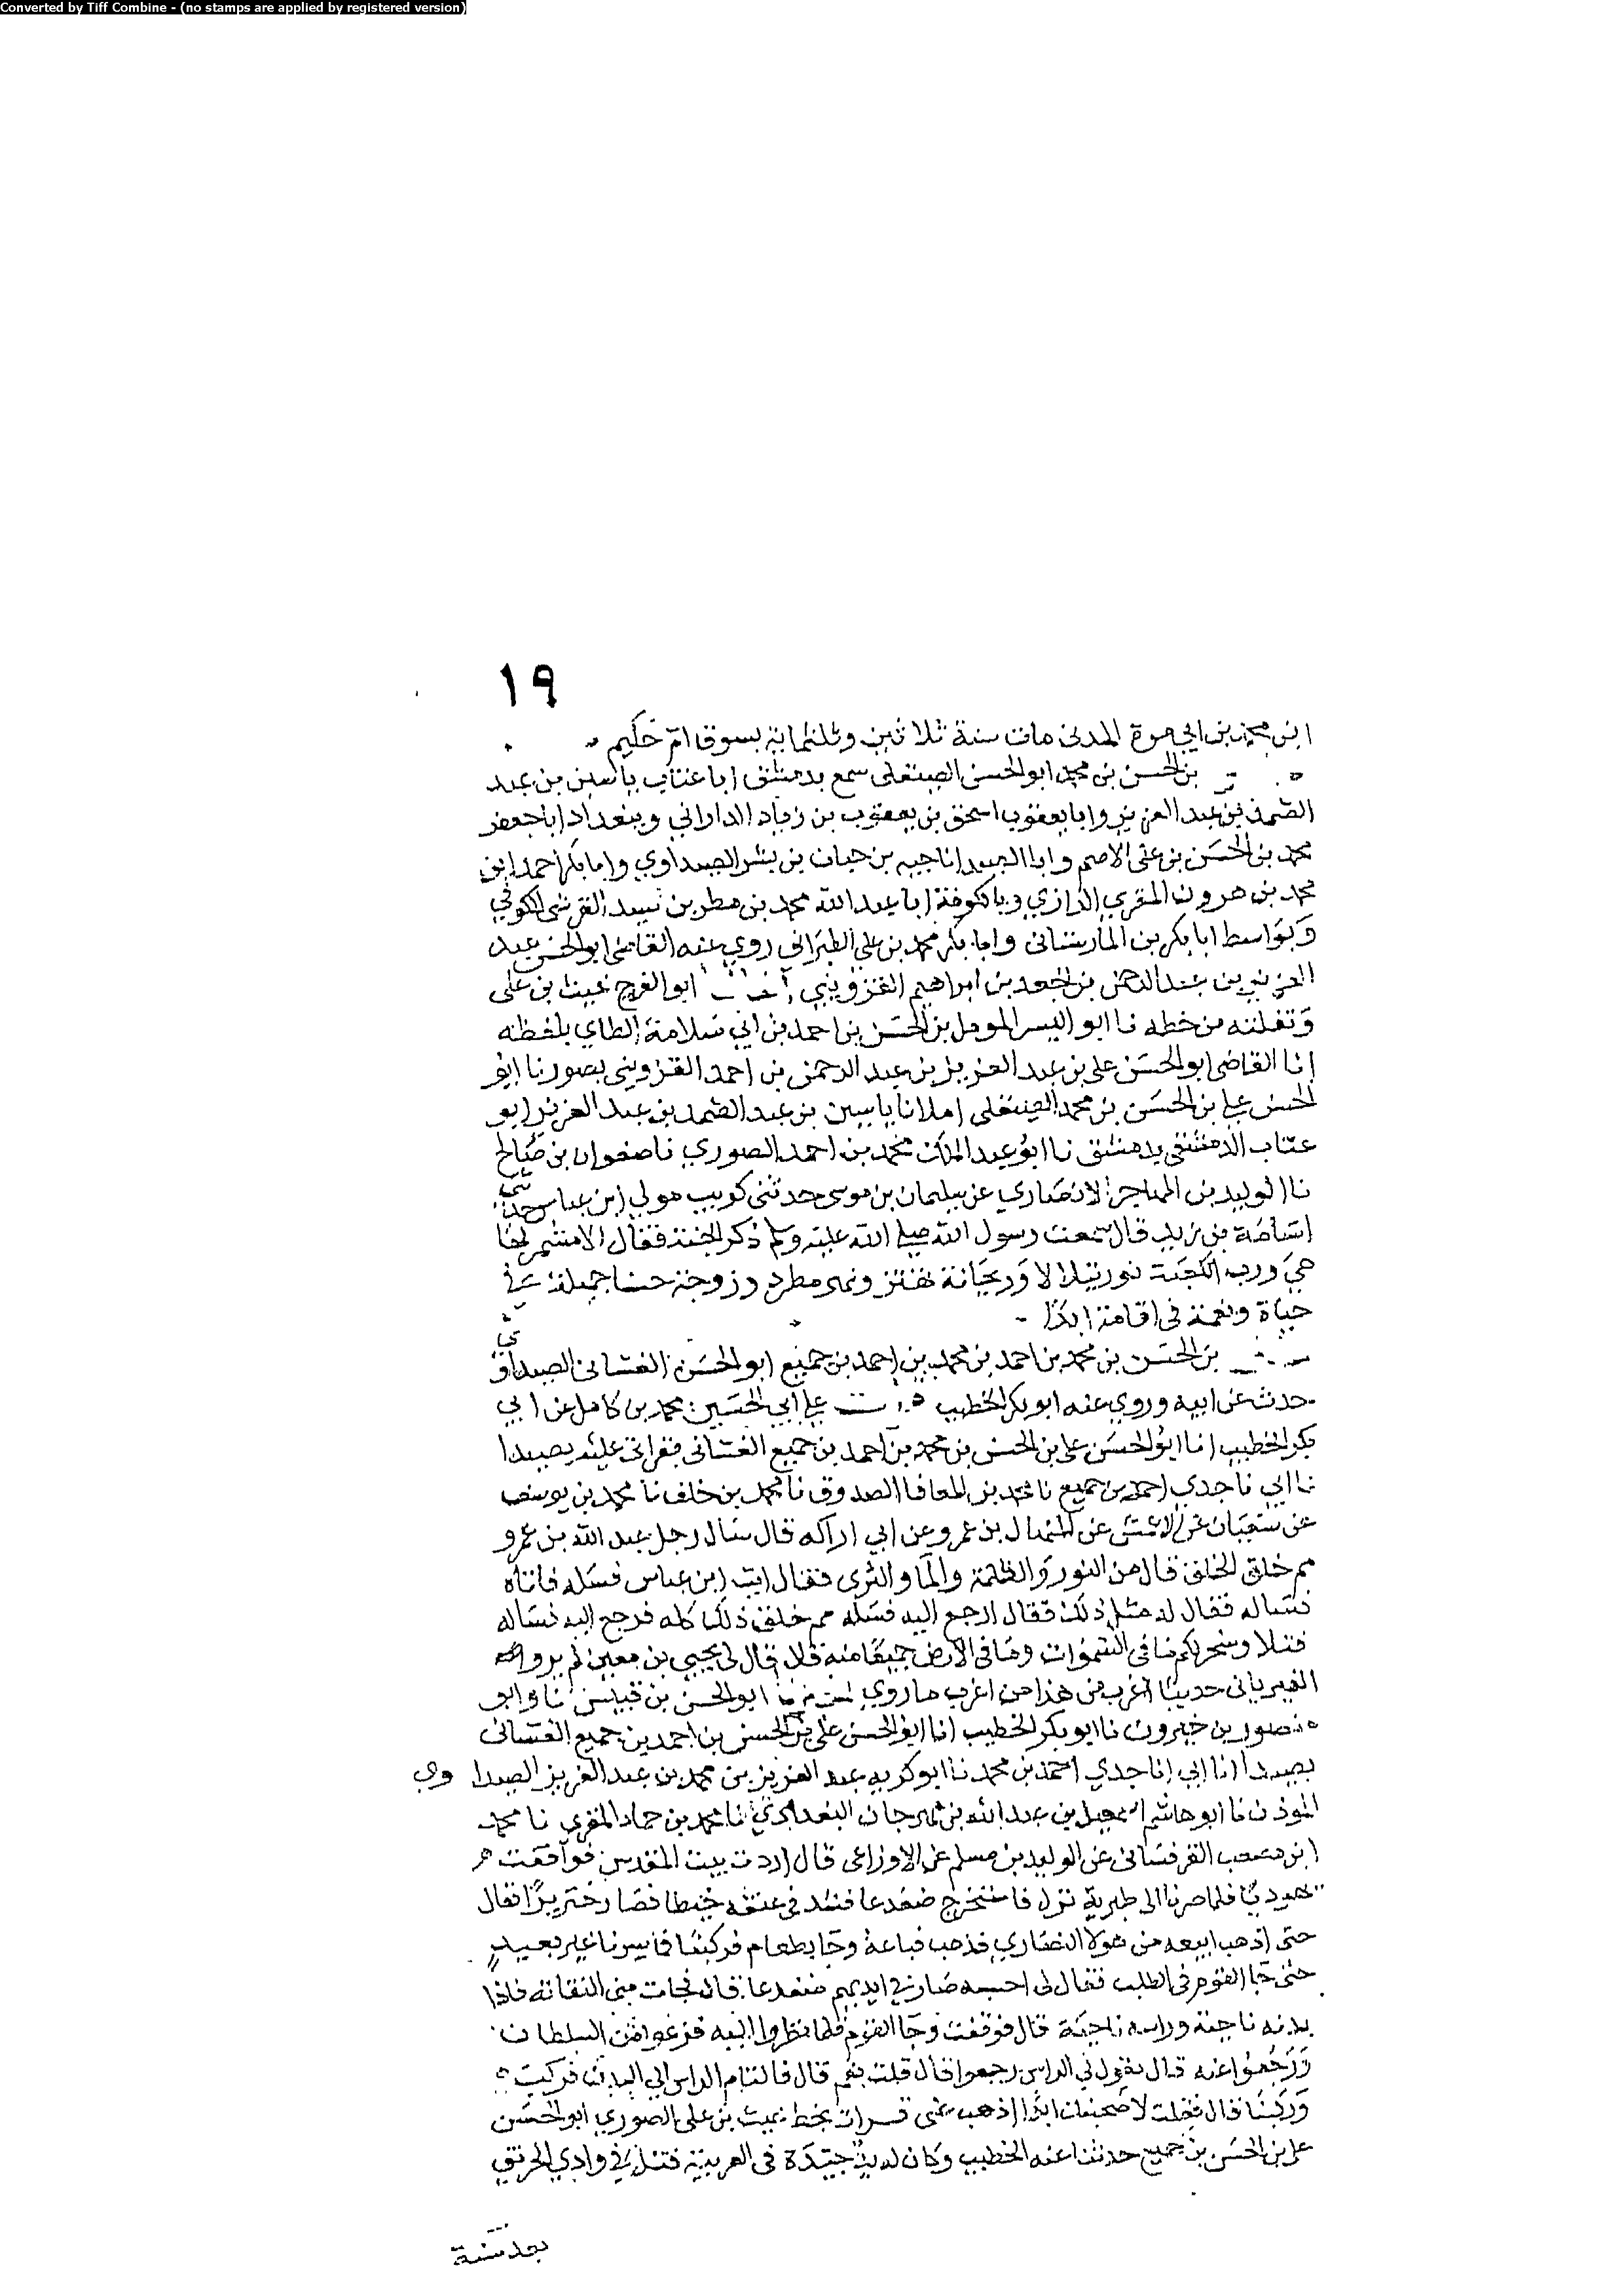 Converted by Tiff Combine - (no stamps are applied by registered version)
١٩
ابن محمد بن ابي مرة المدني مات سنة ثلاثين وثلثماية بسوق ام حكيم
بن الحسن بن محمد ابو الحسن الصيقلي سمع بدمشق ابا عتاب ياسين بن عبد
الصمد بن عبد العزيز وابا يعقوب اسحق بن يعقوب بن زياد الداراني وببغداد ابا جعفر
محمد بن الحسن بن علي الاصم وابا ناجيه بن حيان بن بشر الصيداوي وابا بكر احمد ابن
محمد بن هرون المقري الرازي وبالكوفة ابا عبد الله محمد بن مطر بن القرشي الكوفي
وبواسط ابا بكر بن المارستاني وابا بكر محمد بن علي الطبراني روي عنه القاضي ابو الحسن عبد
العزيز بن عبد الرحمن بن الجعد بن ابراهيم القزويني ابو الفرج غيث بن علي
ونقلته من خطه نا ابو اليسر المومل بن الحسن بن احمد بن ابي سلامة الطاي بلفظه
انا القاضي ابو الحسن علي بن عبد العزيز بن عبد الرحمن بن احمد القزويني بصور نا ابو
الحسن علي بن الحسن بن محمد الصيقلي املا نا ياسين بن عبد الصمد بن عبد العزيز ابو
عتاب الدمشقي بدمشق نا ابو عبد الملك محمد بن احمد الصوري نا صفوان بن صالح
نا الوليد بن المهاجر الانصاري عن سليمان بن موسى حدثني كريب مولي ابن عباس حدثني
اسامة بن زيد قال سمعت رسول الله صلى الله عليه وسلم ذكر الجنة فقال الا مشمر لها
هي ورب الكعبة نور يتلالا وريحانة تهتز ونهر مطرد وزوجة حسنا جميلة في
حياة ونعمة في اقامة ابدا
بن الحسن بن محمد بن احمد بن محمد بن احمد بن جميع ابو الحسن الغساني الصيداوي
حدث عن ابيه وروي عنه ابو بكر الخطيب علي ابي الحسين محمد بن كامل عن ابي
بكر الخطيب انا ابو الحسن علي بن الحسن بن محمد بن احمد بن جميع الغساني بقراتي عليه بصيدا
نا ابي نا جدي احمد بن جميع نا محمد بن المعافا الصدوق نا محمد بن خلف نا محمد بن يوسف
عن سفيان عن الاعمش عن المنهال بن عمرو عن ابي اراكه قال سال رجل عبد الله بن عمرو
مم خلق الخلق قال من النور والظلمة والما والثرى فقال ايت ابن عباس فسله فاتاه
فساله فقال له مثل ذلك فقال ارجع اليه فسله مم خلق ذلك كله فرجع اليه فساله
فتلا وسخر لكم ما في السموات وما في الارض جميعا منه قال قال لي يحيى بن معين لم يرو
الفيرياني حديثا اغرب من هذا من اغرب ما روي ابو الحسن بن قبيس نا وابو
منصور بن خيرون نا ابو بكر الخطيب انا ابو الحسن علي بن الحسن بن احمد بن جميع الغساني
بصيدا انا ابي انا جدي احمد بن محمد نا ابو كريب عبد العزيز بن محمد بن عبد العزيز الصيداوي
الموذن نا ابو هاشم اسمعيل بن عبد الله بن مهرجان البغدادي نا محمد بن حماد المقري نا محمد
ابن مصعب القرقساني عن الوليد بن مسلم عن الاوزاعي قال اردت بيت المقدس فوافقت
يهوديا فلما صرنا الى طبرية نزل فاستخرج ضفدعا فشد في عنقه خيطا فصار خنزيرا فقال
حتى اذهب ابيعه من هولا النصاري فذهب فباعه وجا بطعام فركبنا فما سرنا غير بعيد
حتى جا القوم في الطلب فقال لي احسبه صار في ايديهم ضفدعا قال فحانت مني التفاتة فاذا
بدنه ناحية وراسه ناحية قال فوقفت وجا القوم فلما نظروا اليه فزعوا من السلطان
ورجعوا عنه قال يقول لي الراس رجعوا قال قلت نعم قال فالتام الراس الي البدن فركب
وركبنا قال فقلت لا صحبتك ابدا اذهب عني قرات بخط غيث بن علي الصوري ابو الحسن
علي بن الحسن بن جميع حدثنا عنه الخطيب وكان لديه جيدة في العربية قتل في وادي الحرنق
بعد سنة